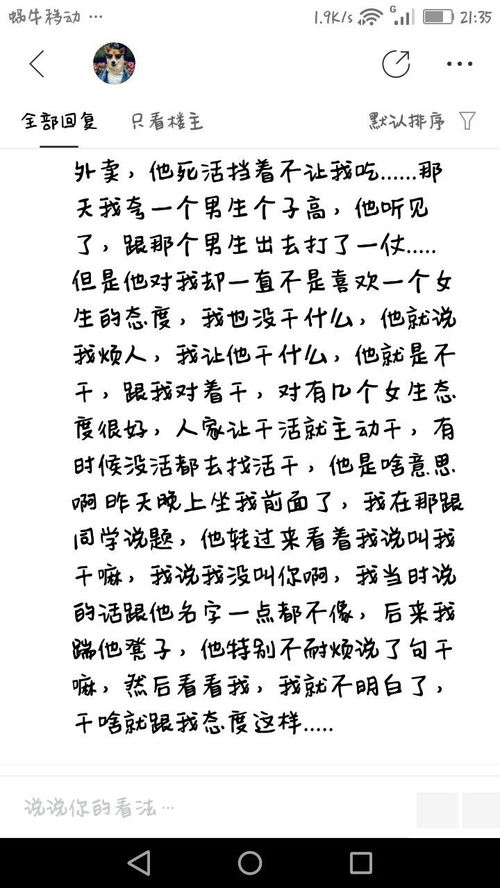 蜗牛移动 ··· 1.9K/s G 21:35
全部回复 只看楼主 默认排序
外卖，他死活挡着不让我吃......那
天我夸一个男生个子高，他听见
了，跟那个男生出去打了一仗.....
但是他对我却一直不是喜欢一个女
生的态度，我也没干什么，他就说
我烦人，我让他干什么，他就是不
干，跟我对着干，对有几个女生态
度很好，人家让干活就主动干，有
时候没活都去找活干，他是啥意思
啊昨天晚上坐我前面了，我在那跟
同学说题，他转过来看着我说叫我
干嘛，我说我没叫你啊，我当时说
的话跟他名字一点都不像，后来我
踹他凳子，他特别不耐烦说了句干
嘛，然后看看我，我就不明白了，
干啥就跟我态度这样.....
说说你的看法···